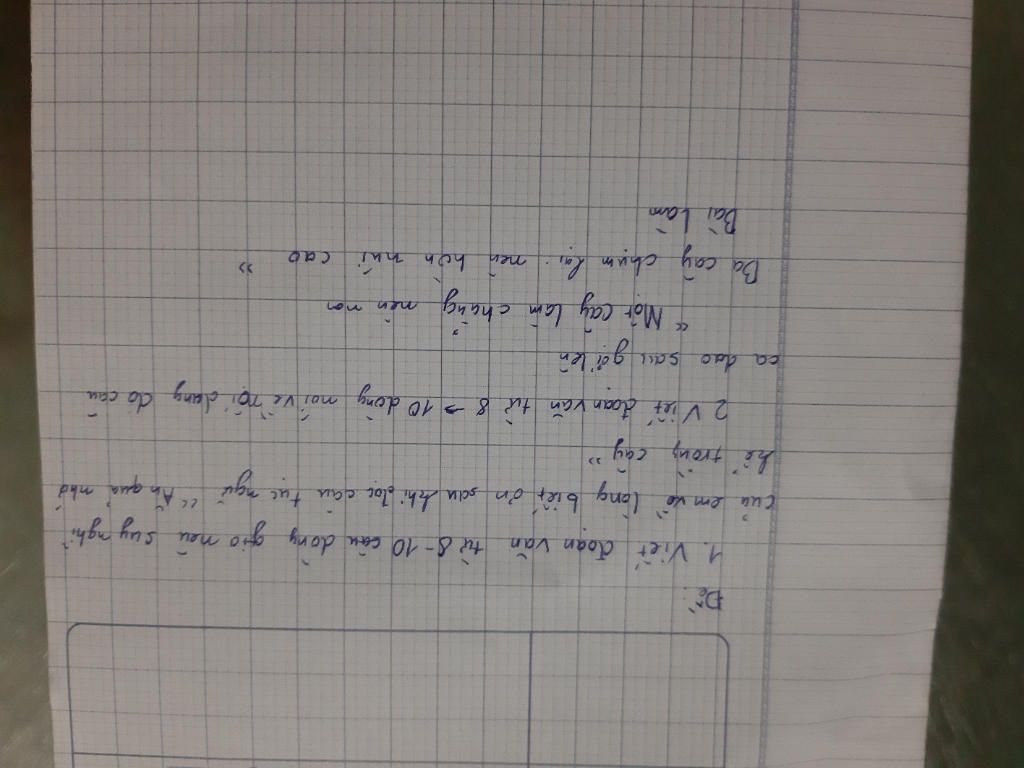 Đề:
1. Viết đoạn văn từ 8-10 câu dòng gio nêu suy nghĩ
của em về lòng biết ơn sau khi đọc câu tục ngữ "Ăn quả nhớ
kẻ trồng cây"
2 Viết đoạn văn từ 8 → 10 dòng nói về nội dung do câu
ca dao sau gợi lên
"Một cây làm chẳng nên non
Ba cây chụm lại nên hòn núi cao"
Bài làm